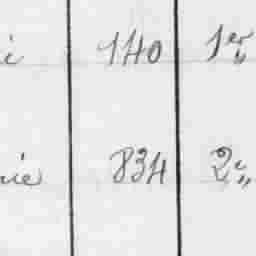 i 140 1er „
nie 834 2e „